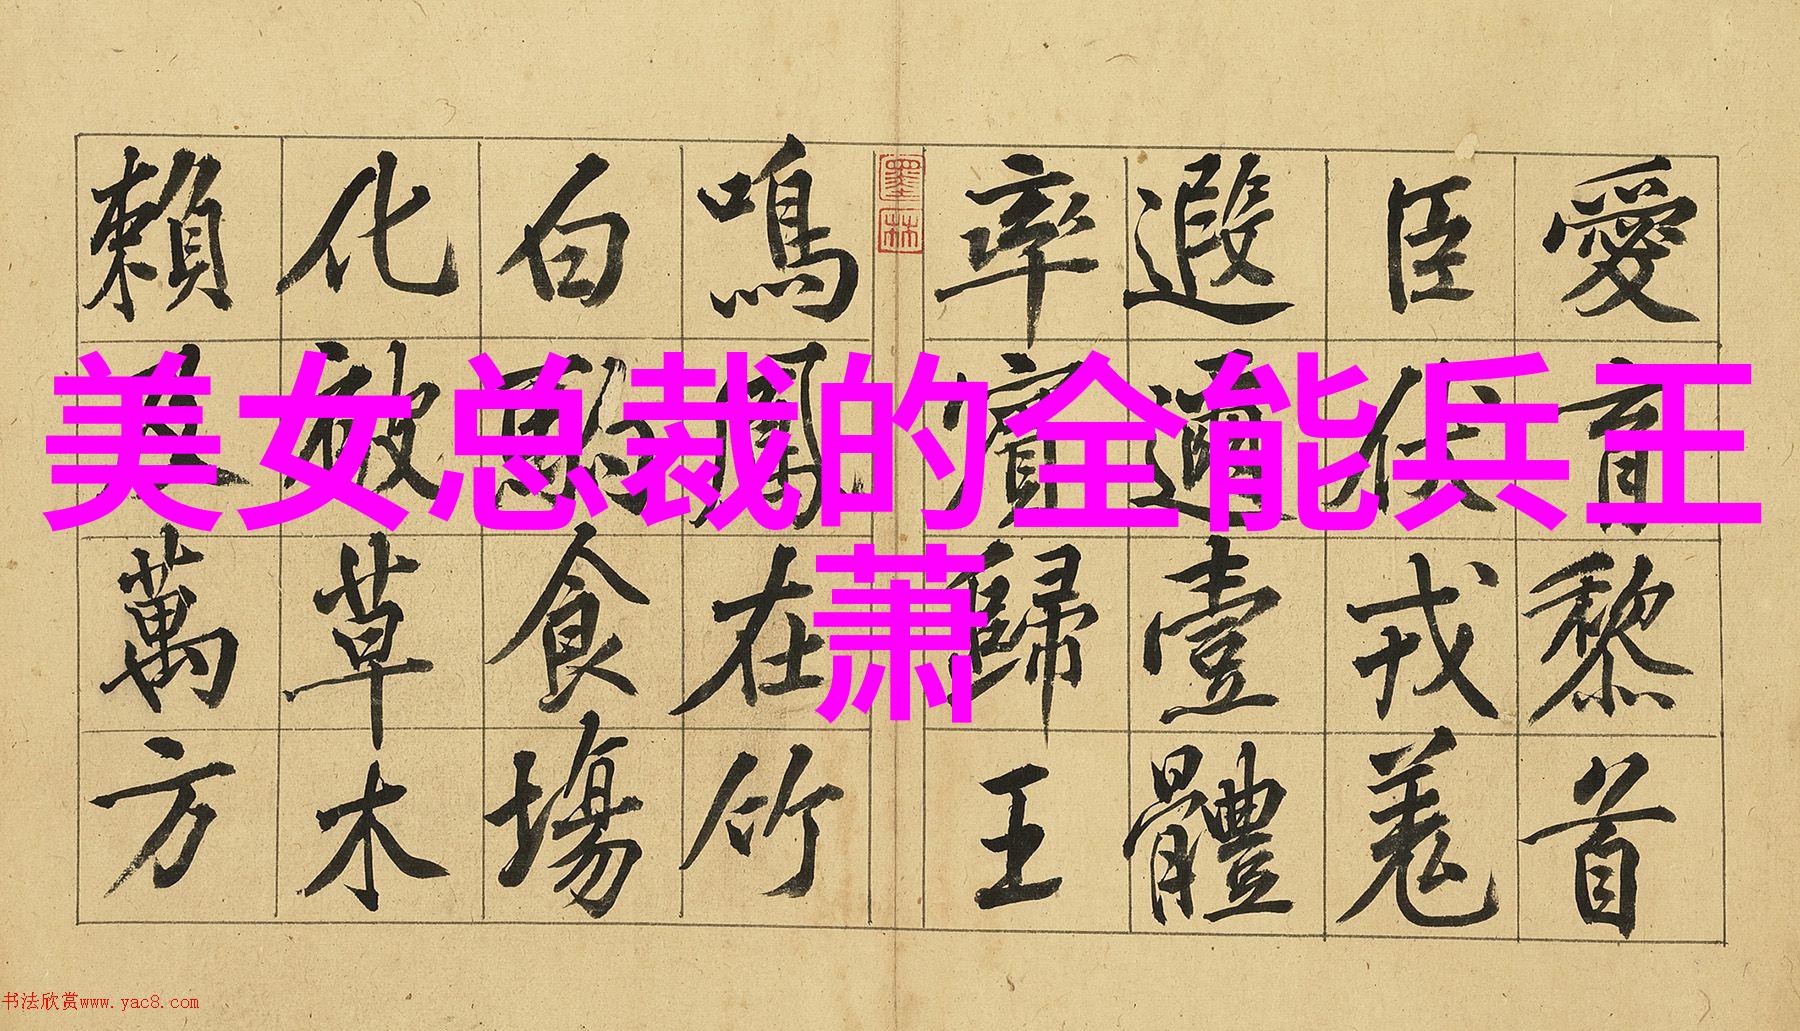 愛育黎首
臣伏戎羌
遐邇壹體
率賓歸王
墨林
鳴鳳在竹
白駒食場
化被草木
賴及萬方
美女总裁的全能兵王
萧
书法欣赏www.yac8.com